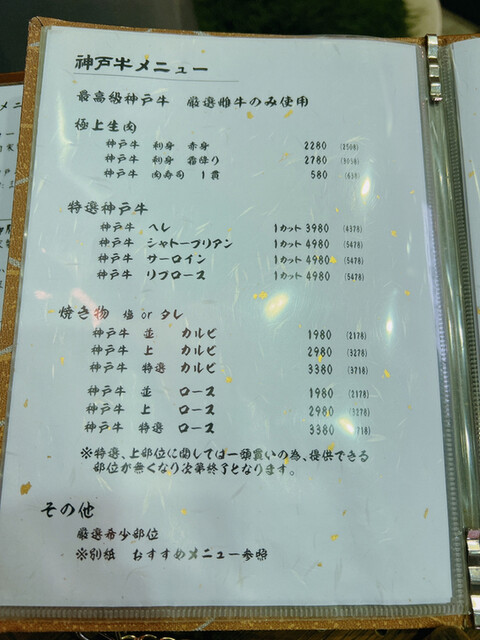 神戸牛メニュー
最高級神戸牛 厳選雌牛のみ使用
極上生肉
神戸牛 刺身 赤身 2280 (2508)
神戸牛 刺身 霜降り 2780 (3058)
神戸牛 肉寿司 1貫 580 (638)
特選神戸牛
神戸牛 ヘレ 1カット 3980 (4378)
神戸牛 シャトーブリアン 1カット 4980 (5478)
神戸牛 サーロイン 1カット 4980 (5478)
神戸牛 リブロース 1カット 4980 (5478)
焼き物 塩 or タレ
神戸牛 並 カルビ 1980 (2178)
神戸牛 上 カルビ 2980 (3278)
神戸牛 特選 カルビ 3380 (3718)
神戸牛 並 ロース 1980 (2178)
神戸牛 上 ロース 2980 (3278)
神戸牛 特選 ロース 3380 (3718)
※特選、上部位に関しては一頭買いの為、提供できる
部位が無くなり次第終了となります。
その他
厳選希少部位
※別紙 おすすめメニュー参照